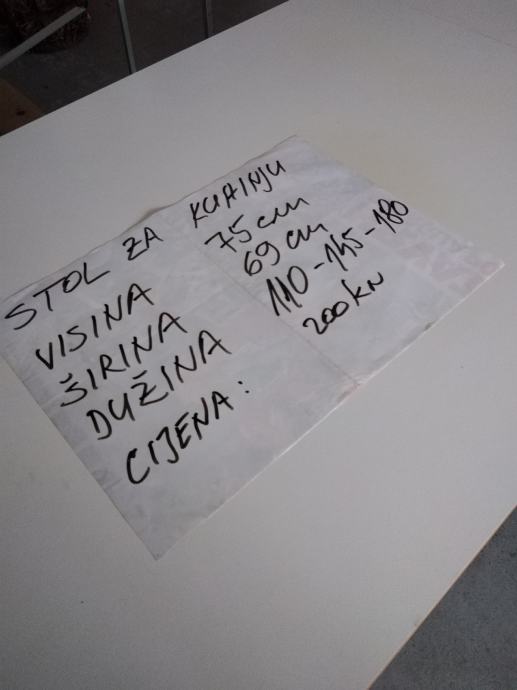 STOL ZA KUHINJU
VISINA 75 cm
ŠIRINA 69 cm
DUŽINA 110-145-180
CIJENA: 200 KN